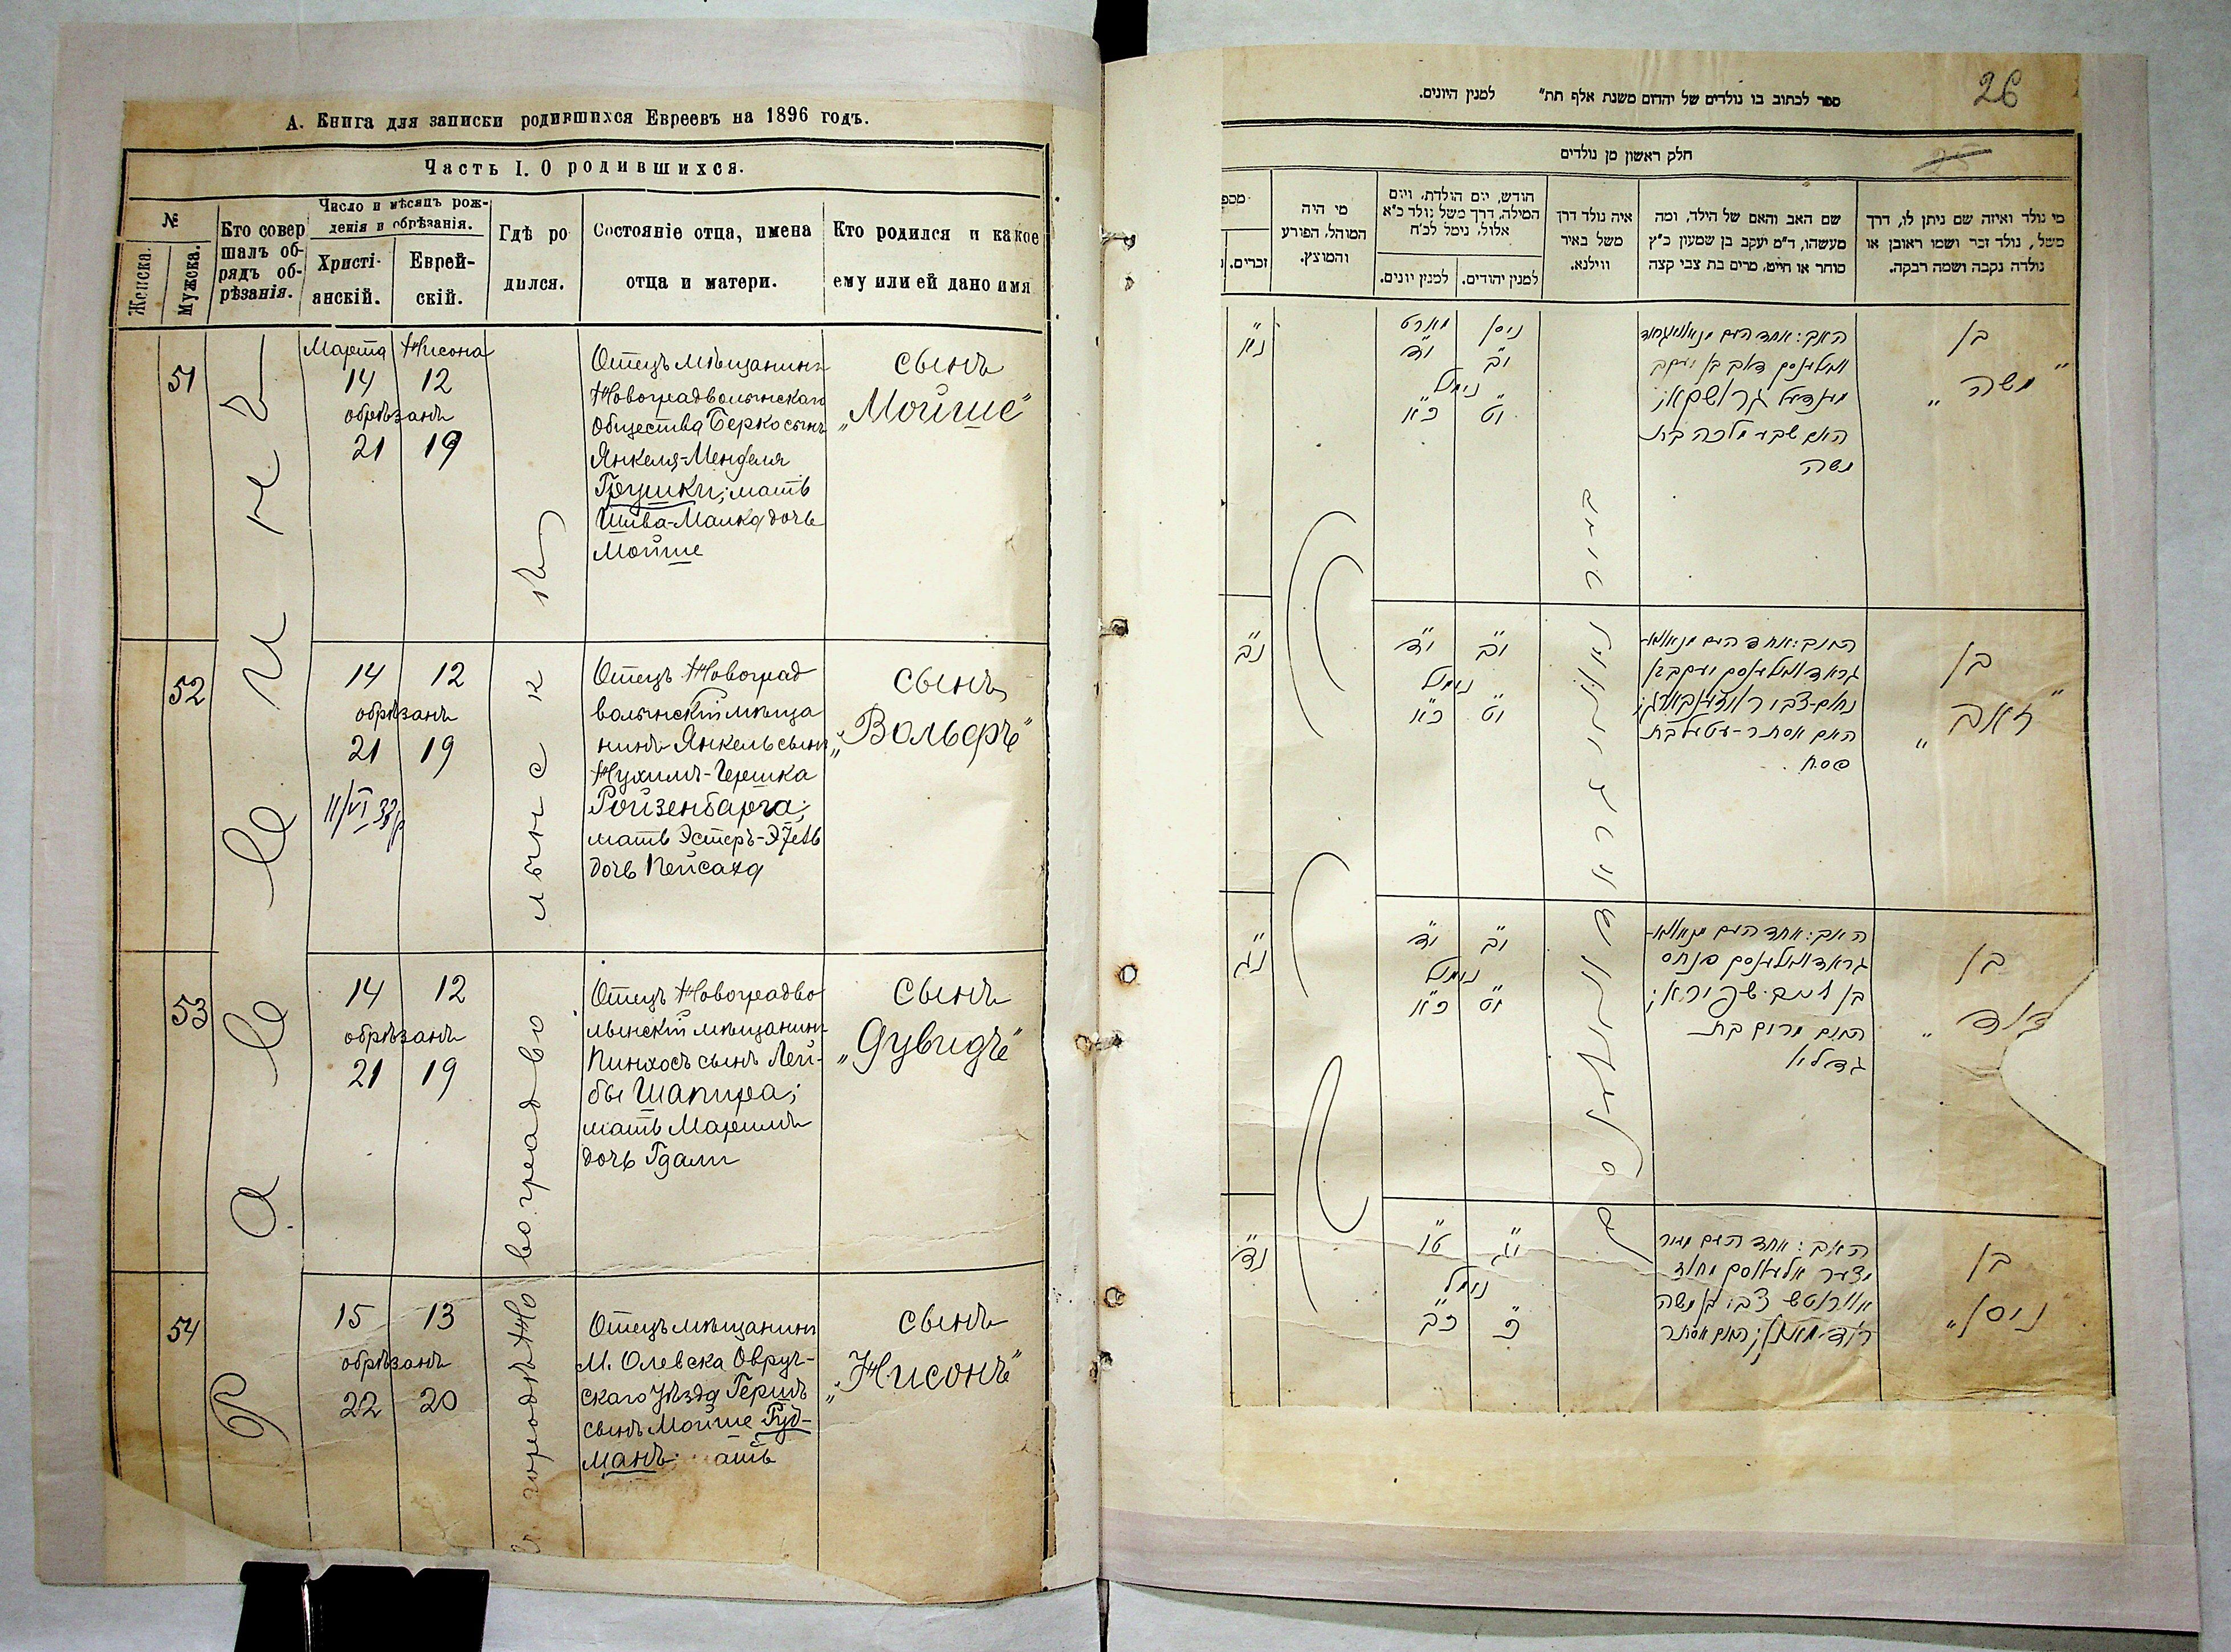 А. Книга для записки родившихся Евреевъ на 1896 годъ.
Часть I. О родившихся.
№
Женска.
Мужска.
Кто совер
шалъ об-
рядъ об-
рѣзанія.
Число и мѣсяцъ рож-
денія и обрѣзанія.
Христі-
анскій.
Еврей-
скій.
Гдѣ ро
дился.
Состояніе отца, имена
отца и матери.
Кто родился и какое
ему или ей дано имя
51
Марта Нисона
14 12
обрѣзанъ
21 19
Отецъ мѣщанинъ
Новоградволынскаго
общества Берко сынъ
Янкеля-Менделя
Грушки; мать
Шива-Малка дочь
Мойше
сынъ
„Мойше"
52
14 12
обрѣзанъ
21 19
11/VI 38
Отецъ Новоград
волынскій мѣща
нинъ Янкель сынъ
Нухимъ-Гершка
Ройзенбарга;
мать Эстеръ-Этель
дочь Пейсаха
сынъ
„Вольфъ"
53
14 12
обрѣзанъ
21 19
Отецъ Новоградво
лынскій мѣщанинъ
Пинхосъ сынъ Лей-
бы Шапира;
мать Маримъ
дочь Гдали
сынъ
„Дувидъ"
54
15 13
обрѣзанъ
22 20
Отецъ мѣщанинъ
М. Олевска Овруч-
скаго уѣзда Гершъ
сынъ Мойше Гуд-
манъ
сынъ
„Нисонъ"
городѣ Новоградволынскѣ
26
ספר לכתוב בו נולדים של יהדום משנת אלף תת" למנין היונים.
חלק ראשון מן נולדים
מי נולד ואיזה שם ניתן לו, דרך
משל, נולד זכר ושמו ראובן או
נולדה נקבה ושמה רבקה.
שם האב והאם של הילד, ומה
מעשהו, ד"מ יעקב בן שמעון כ"ץ
סוחר או חייט, מרים בת צבי קצה
איה נולד דרך
משל באיר
ווילנא.
חודש, יום הולדת, ויום
המילה, דרך משל נולד כ"א
אלול, נימל לכ"ח
למנין יהודים.
למנין יונים.
מי היה
המוהל, הפורע
והמוצץ.
מספ
זכרים.
בן
„משה"
האם שבע מלכה בת
משה
ניסן מארט
י"ב י"ד
נימול
י"ט כ"א
נ"א
בן
„זאב"
האם אסתר-עטעל בת
פסח
י"ב י"ד
נימול
י"ט כ"א
נ"ב
בן
„דוד"
האם מרים בת
גדליא
י"ב י"ד
נימול
י"ט כ"א
נ"ג
בן
„ניסן"
י"ג ט"ו
נימול
כ' כ"ב
נ"ד